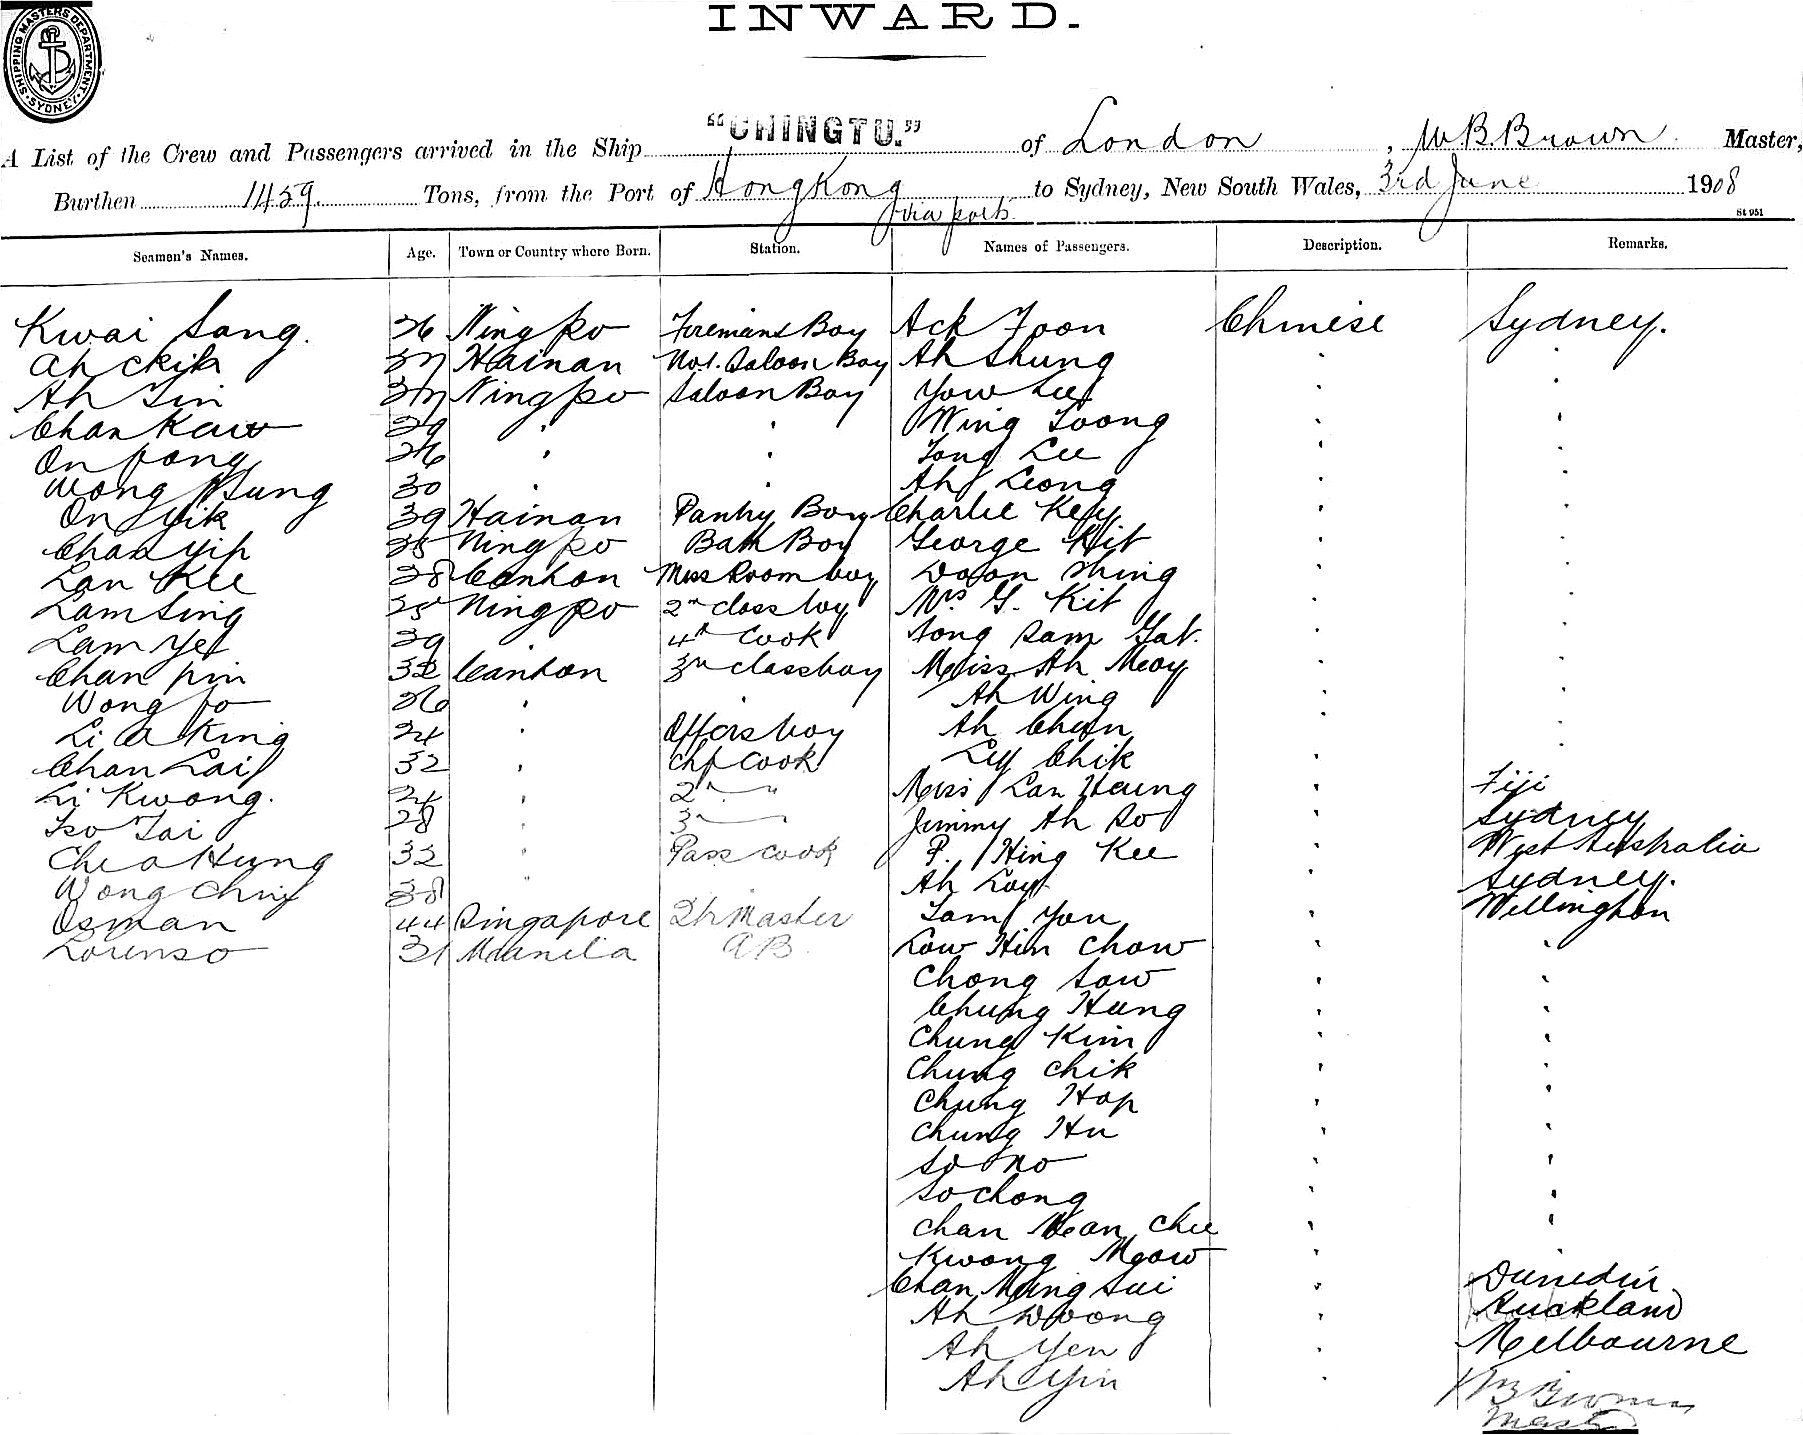 INWARD.
SHIPPING MASTERS DEPARTMENT. SYDNEY.
A List of the Crew and Passengers arrived in the Ship "CHINGTU." of London, W B. Brown. Master,
Burthen 1459. Tons, from the Port of HongKong to Sydney, New South Wales, 3rd June 1908
via ports.
St 951
Seamen's Names. Age. Town or Country where Born. Station. Names of Passengers. Description. Remarks.
Kwai Sang. 26 Ningpo Firemans Boy Ack Foon Chinese Sydney.
Ah Chik Hainan No.1. Saloon Boy Ah Shung
Ah Sin Ningpo Saloon Boy Yow Lee
Chan Kaw 29 Wing Soong
On fong 26 Tong Lee
Wong Sung 30 Ah Leong
On Yik 39 Hainan Pantry Boy Charlie Key
Chan Yip Ningpo Bath Boy George Kit
Lan Kee 38 Canton Mess Room boy Shing
Lam Sing 25 Ningpo 2nd class boy Mrs G. Kit
Lam Yet 39 4th Cook Sam
Chan pin 32 Canton 3rd class boy Miss Ah Moy
Wong fo 26 Ah Wing
Li A King 24 Offcrs boy Ah Chun
Chan Lai 32 Chf Cook Ley Chik
Li Kwong. 24 2nd " Miss Lan Heung Fiji
Tso Tai 28 3rd " Jimmy Ah So Sydney
Cheo Hung 32 Pass cook P. Hing Kee West Australia
Wong Ching 38 Ah Loy Sydney.
Osman 44 Singapore Qtr Master Tam You Wellington
Lorenso 31 Manila A B. Low Hin Chow
Chong Saw
Chung Hung
Chung Kim
Chung Chik
Chung Hop
Chung Hu
So No
So Chong
Chan Mean Chee
Kwong Meow
Chan Ming Sui Dunedin
Ah Woong Auckland
Ah Yen Melbourne
Ah Yin
W B Brown
Master